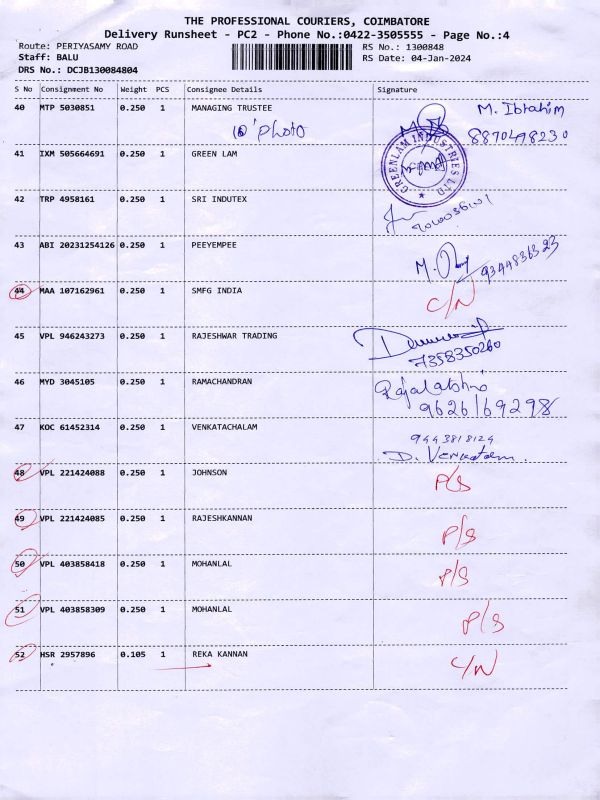 THE PROFESSIONAL COURIERS, COIMBATORE
Delivery Runsheet - PC2 - Phone No.:0422-3505555 - Page No.:4
Route: PERIYASAMY ROAD RS No.: 1300848
Staff: BALU RS Date: 04-Jan-2024
DRS No.: DCJB130084804
S No Consignment No Weight PCS Consignee Details Signature
40 MTP 5030851 0.250 1 MANAGING TRUSTEE M. Ibrahim
Photo 8870498230
41 IXM 505664691 0.250 1 GREEN LAM
GREENLAM INDUSTRIES LTD
42 TRP 4958161 0.250 1 SRI INDUTEX
43 ABI 20231254126 0.250 1 PEEYEMPEE
44 MAA 107162961 0.250 1 SMFG INDIA C/N
45 VPL 946243273 0.250 1 RAJESHWAR TRADING
7358350260
46 MYD 3045105 0.250 1 RAMACHANDRAN
9626169298
47 KOC 61452314 0.250 1 VENKATACHALAM 9443818124
D. Venkatalam
48 VPL 221424088 0.250 1 JOHNSON P/S
49 VPL 221424085 0.250 1 RAJESHKANNAN P/S
50 VPL 403858418 0.250 1 MOHANLAL P/S
51 VPL 403858309 0.250 1 MOHANLAL P/S
52 HSR 2957896 0.105 1 REKA KANNAN C/N